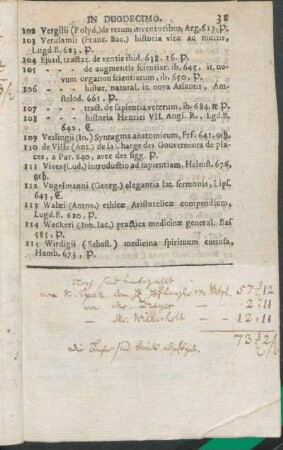 IN DUODECIMO. 31
102 Vergilii (Polyd.) de rerum inventoribus, Arg. 613, P.
103 Verulamii (Franc. Bac.) historia vitæ ac mortis,
Lugd.B. 623, P.
104 Ejusd. tractat. de ventis ibid. 638. 16. P.
105 - - de augmentis scientiar. ib. 645, it. no-
vum organon scientiarum, ib. 650, P.
106 - - histor. natural. it. nova Atlantis, Am-
stelod. 661, P.
107 - - tract. de sapientia veterum, ib. 684. P.
108 - - historia Henrici VII. Angl. R., Lgd.B.
642, E.
109 Veslingii (Io.) Syntagma anatomicum, Frf. 641, gh.
110 de Ville (Ant.) de la charge des Gouverneurs de pla-
ces, a Par. 640, avec des figg. P.
111 Vives (Lud.) introductio ad sapientiam, Helmst. 676,
gh.
112 Vogelmanni (Georg.) elegantia lat. sermonis, Lips.
643, E.
113 Walæi (Anton.) ethicæ Aristotelicæ compendium,
Lugd.B. 620, P.
114 Weckeri (Joh. Iac.) practica medicinæ general. Bas
585, P.
115 Wirdigii (Sebast.) medicina spirituum curiosa,
Hamb. 673, P.
Noch sind
57 12
2 11
12 11
73